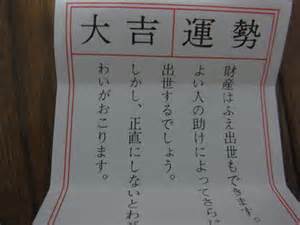 大吉 運勢
財産はふえ出世もできます。
よい人の助けによってさらに
出世するでしょう。
しかし、正直にしないとわざ
わいがおこります。